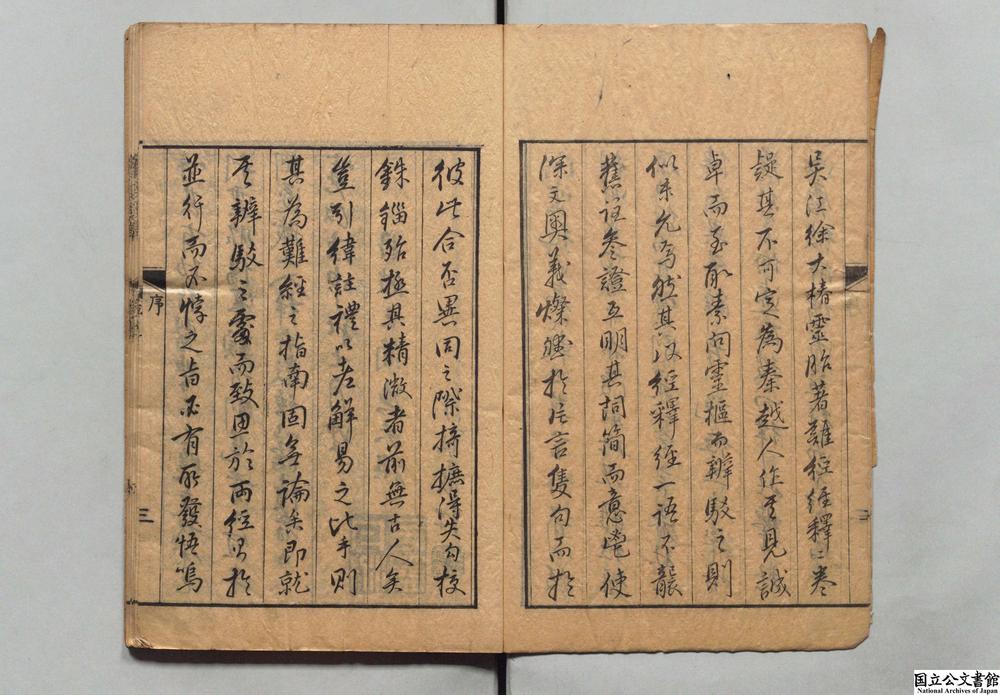 吴江徐大椿靈胎著難經經釋二卷
疑其不可定為秦越人作其見誠
卓而至取素問靈樞而辨駁之則
似未允為然其以經釋經一語不襲
舊註參證互明其詞簡而意賅使
深文奧義燦然於片言隻句而於
彼此合否異同之際掎摭得失勾校
銖錙殆極其精微者前無古人矣
豈引緯註禮以老解易之比乎則
其為難經之指南固無論矣即就
其辨駁之處而致思於両經以於
並行而不悖之旨必有所發悟焉
序
三
国立公文書館
National Archives of Japan